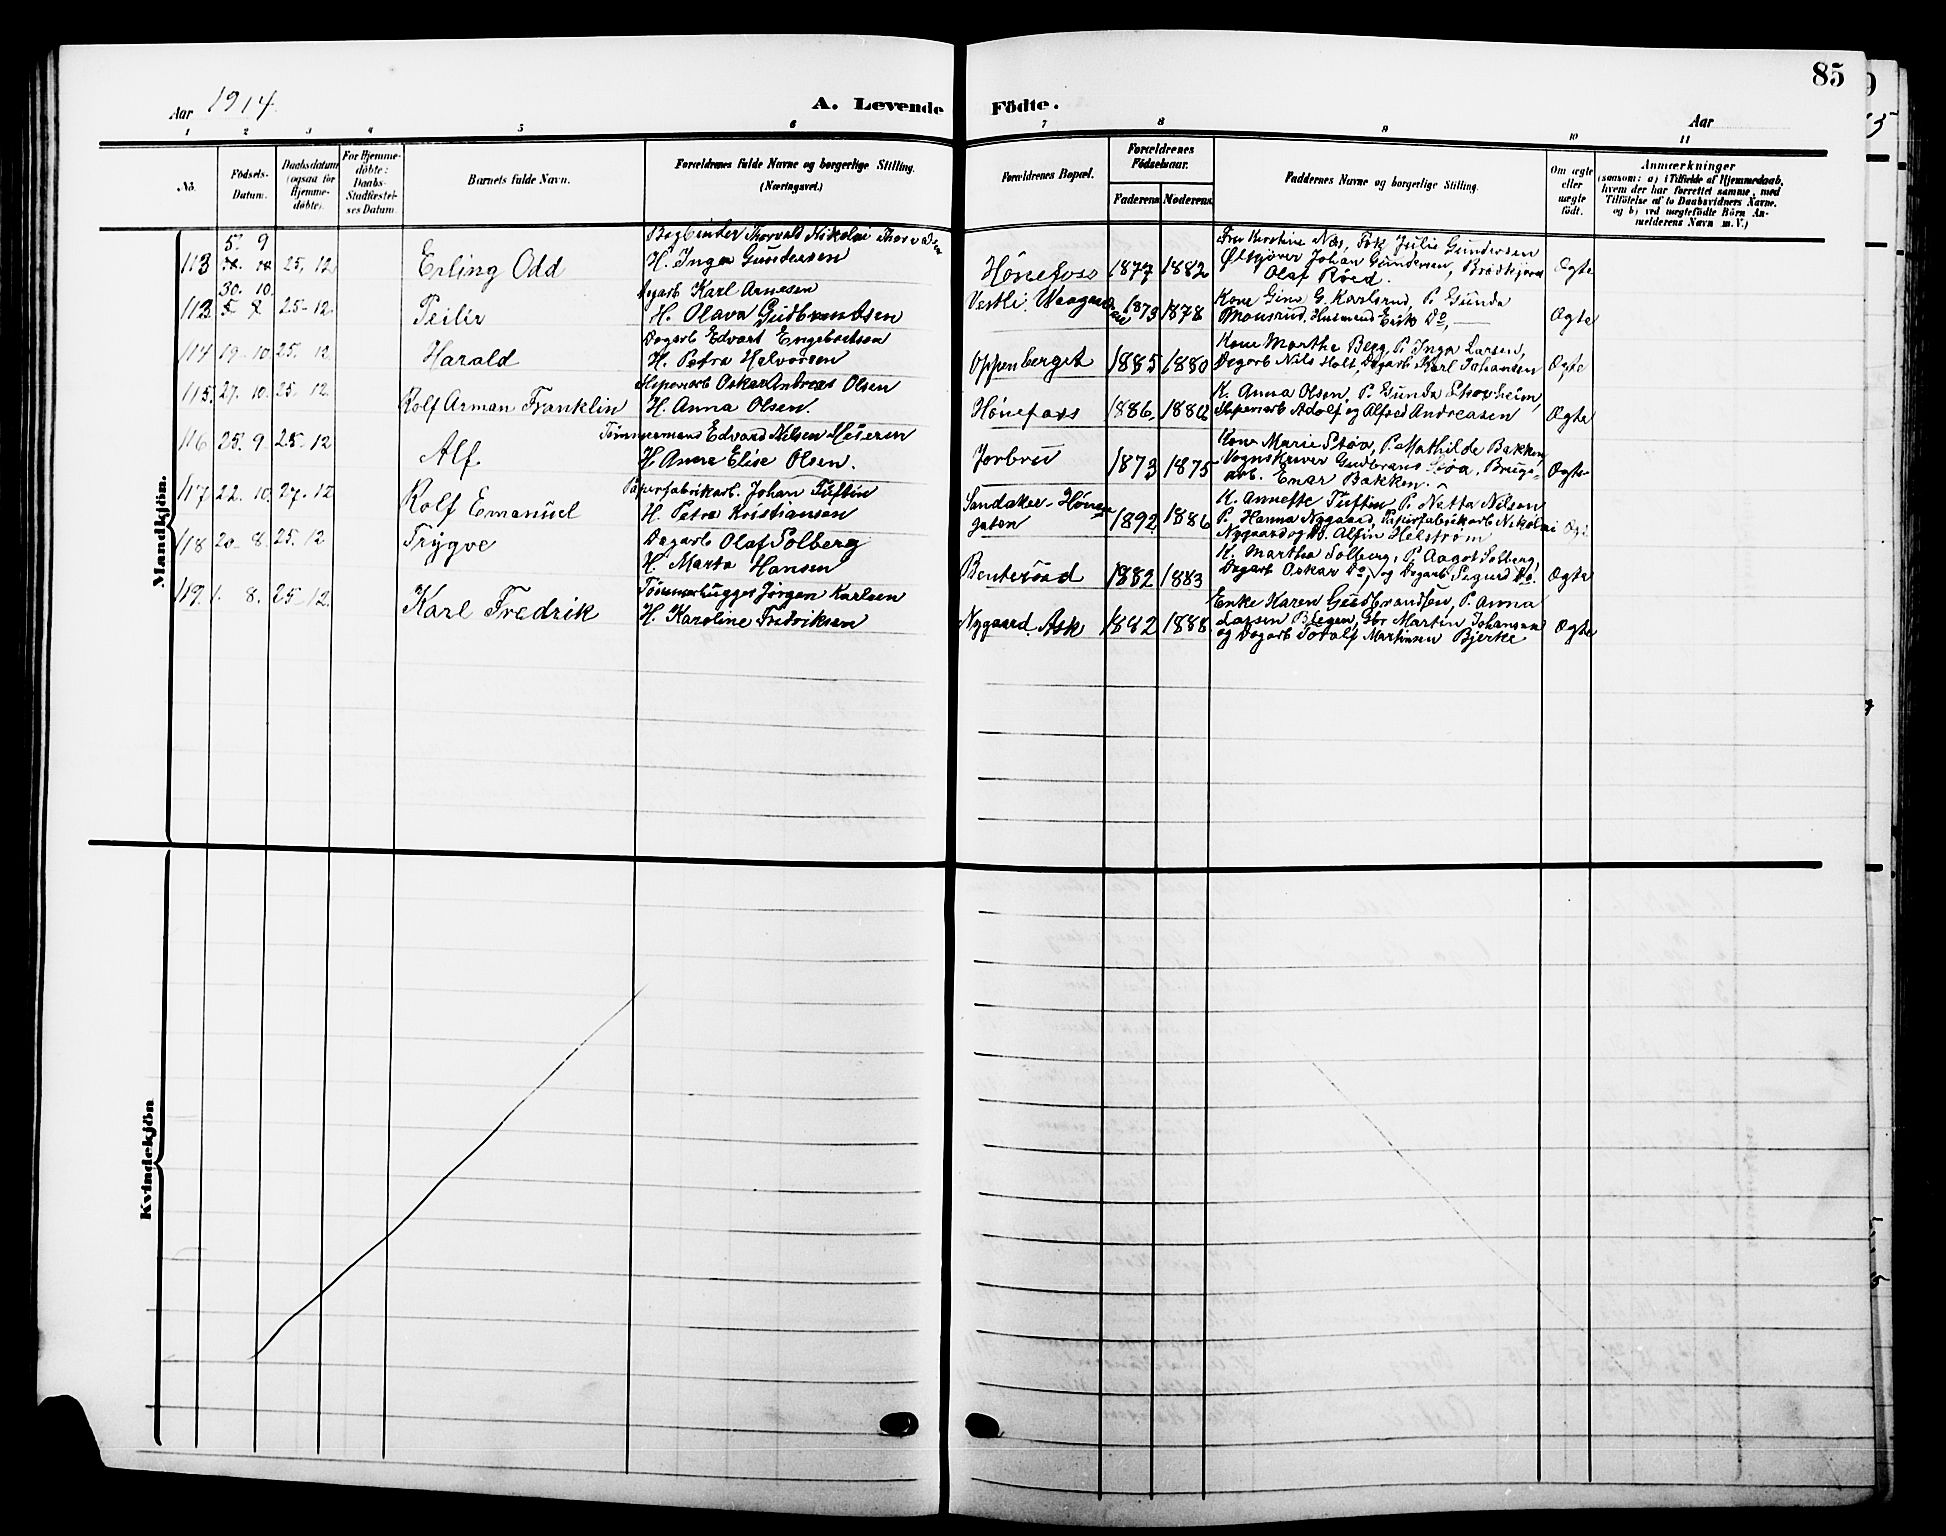 85
Aar 1914.
A. Levende Födte.
Aar
1 2 3 4 5 6 7 8 9 10 11
No.
Födsels-Datum.
Daabsdatum (ogsaa for Hjemme-döbte).
For Hjemme-döbte: Daabs-Stadfæstel-ses Datum
Barnets fulde Navn.
Forældrenes fulde Navne og borgerlige Stilling. (Næringsvei.)
Forældrenes Bopæl.
Forældrenes Födselsaar.
Faderens Moderens
Faddernes Navne og borgerlige Stilling.
Om ægte eller uægte födt.
Anmærkninger
(saasom: a) i Tilfælde af Hjemmedaab,
hvem der har forrettet samme, med
Tilföielse af to Daabsvidners Navne.
og b) ved uægtefödte Börn An-
melderens Navn m. V.)
Mandkjön.
113 5. 9 25. 12 Erling Odd
Bogbinder Thorvald Nikolai
H. Inga Gundersen
Hönefoss 1877 1882
Fru Kirstine Næs, Frk Julie Gundersen
Ölkjörer Johan Gundersen, Brödkjörer
Olaf Röed.
Ægte
113 30. 10. 25-12
Dagarb Karl Arnesen
H. Olava Gudbrandsen
Vestli 1873 1878
Kone Gina G. Karlsrud, P. Gunda
Monsrud, Husmand Erik Do,
Ægte
114 19. 10. 25. 12 Harald
Dagarb Edvart Engebretsen
H. Petra Halvorsen
Oppenberget 1885 1880
Kone Marthe Berg, P. Inga Larsen,
Dagarb Nils Holt, Dagarb Karl Johansen
Ægte
115. 27. 10. 25. 12 Rolf Arman Franklin
Sliperiarb Oskar Andreas Olsen
H. Anna Olsen.
Hönefoss 1886
K. Anna Olsen, P. Gunda Skovheim,
Sliperiarb Adolf og Alfred Andreasen
Ægte
116 25. 9 25. 12 Alf
Tömmermand Edvard Nilsen
H. Anna Elise Olsen.
1873 1875
Kone Marie Stöa, P. Mathilde Bakken,
Vognskriver Gudbrand Stöa, Brugs-
arb. Enar Bakken.
Ægte
117 22. 10. 27. 12 Rolf Emanuel
Papirfabrikarb. Johan Tuftin
H. Petra Kristiansen
Sandaker-Hönen
gaten 1892 1886
K. Annette Tuften P. Netta Nilsen
P. Hanna Nygaard, Papirfabrikarb Nikolai
Nygaard og Do. Alfin Helström
118 20. 8. 25. 12 Trygve
Dagarb Olaf Solberg
H. Marta Hansen
1882 1883
K. Martha Solberg, P. Aagot Solberg,
Dagarb Oskar Do, og Dagarb Sigurd Do.
Ægte
119. 1. 8. 25 12 Karl Fredrik
Tömmerhugger Jörgen Karlsen
H. Karoline Fredriksen
Nygaard Ask 1882 1888
Enke Karen Gudbrandsen, P. Anna
Larsen Blegen, Gbr Martin Johansen
og Dagarb Torolf Martinsen Bjerke
Ægte
Kvindekjön